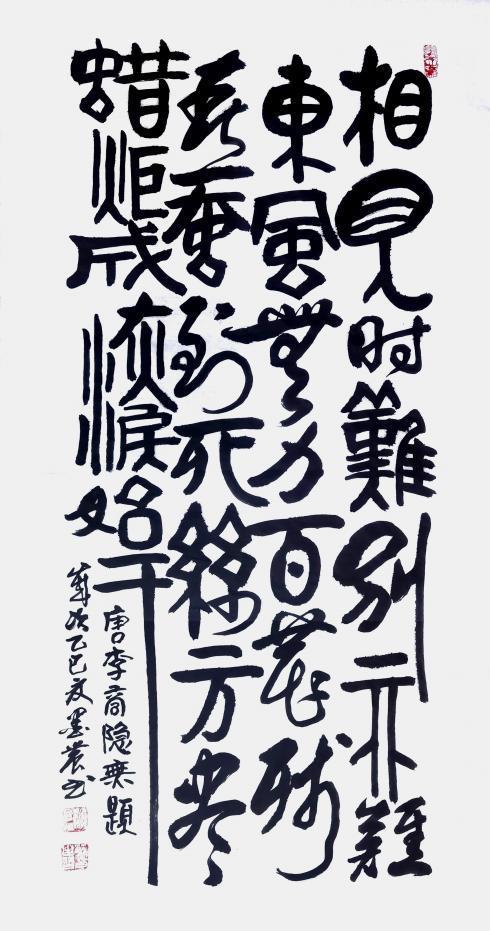 相見时難别亦難
東風無力百花残
春蚕到死絲方尽
蜡炬成灰淚始干
唐李商隐無題
歲次乙巳夏墨農书